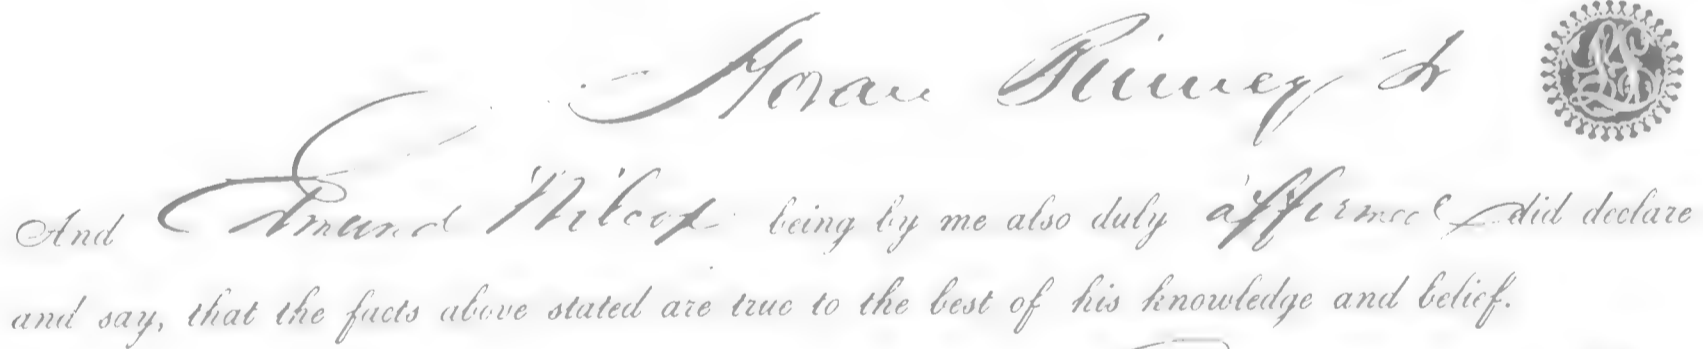 Horace Binney Jr
And Edmund Wilcox being by me also duly affirmed did declare
and say, that the facts above stated are true to the best of his knowledge and belief.